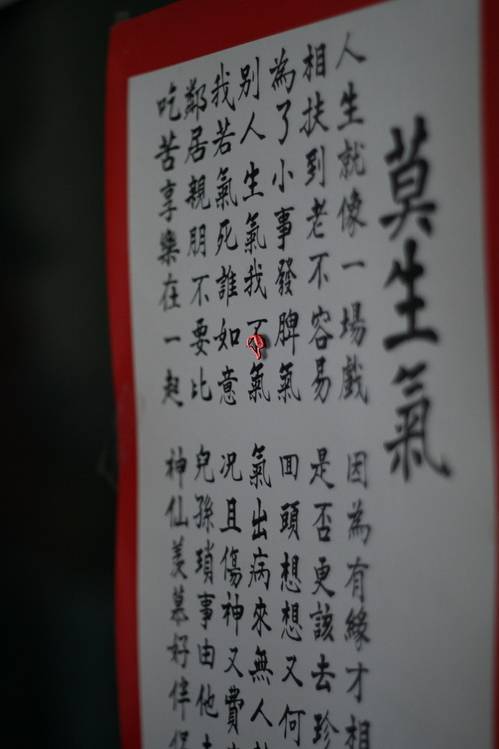 莫生氣
人生就像一場戲 因為有緣才相
相扶到老不容易 是否更該去珍
為了小事發脾氣 回頭想想又何
別人生氣我不氣 氣出病來無人
我若氣死誰如意 況且傷神又費
鄰居親朋不要比 兒孫瑣事由他
吃苦享樂在一起 神仙羨慕好伴